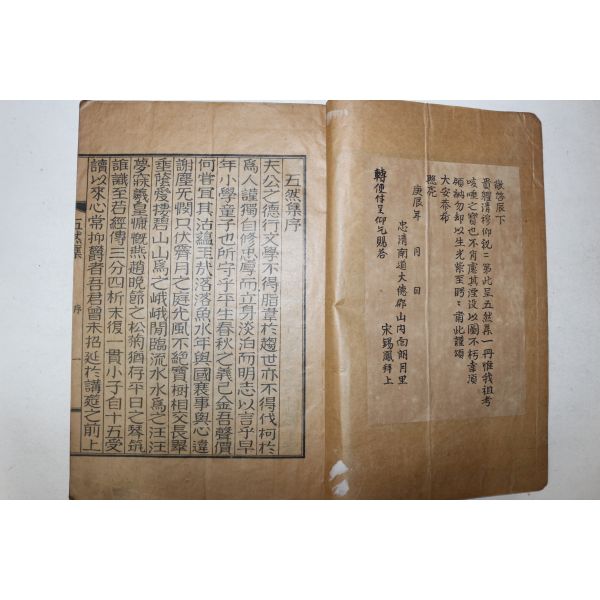 謹啓辰下
貴體清穆仰祝〻第此呈五然集一冊惟我祖考
咳唾之寶也不肖慮其湮沒以圖不朽幸須
領納勿却以生光紫至肅此謹頌
大安恭希
照亮
庚辰年 月 日
忠清南道大德郡山内面朗月里
宋錫鳳拜上
轉便付呈仰乞賜答
五然集序
夫公之德行文學不得脂韋於趨世亦不得伐柯於
爲人謹獨自修忠厚而立身淡泊而明志以言乎早
年小學童子也所守乎平生春秋之義已金吾聲價
何嘗宜其沽蘊玉哉落落魚水年與國喪事與心違
謝塵灰憫只依霽月之庭光風不絶寶樹相交長翠
垂蔭愛搆碧山山爲之峨峨閒臨流水水爲之汪汪
夢寐羲皇慷慨燕趙晩節之松菊猶存平日之琴筑
誰識至若經傳三分四析末復一貫小子自十五受
讀以來心常抑爵者吾君曾未招延於講筵之前上
五然集 序 一